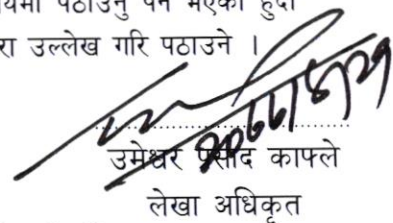 यमा पठाउनु पर्ने भएको हुँदा
रा उल्लेख गरि पठाउने ।
उमेश्वर प्रसाद काफ्ले
लेखा अधिकृत